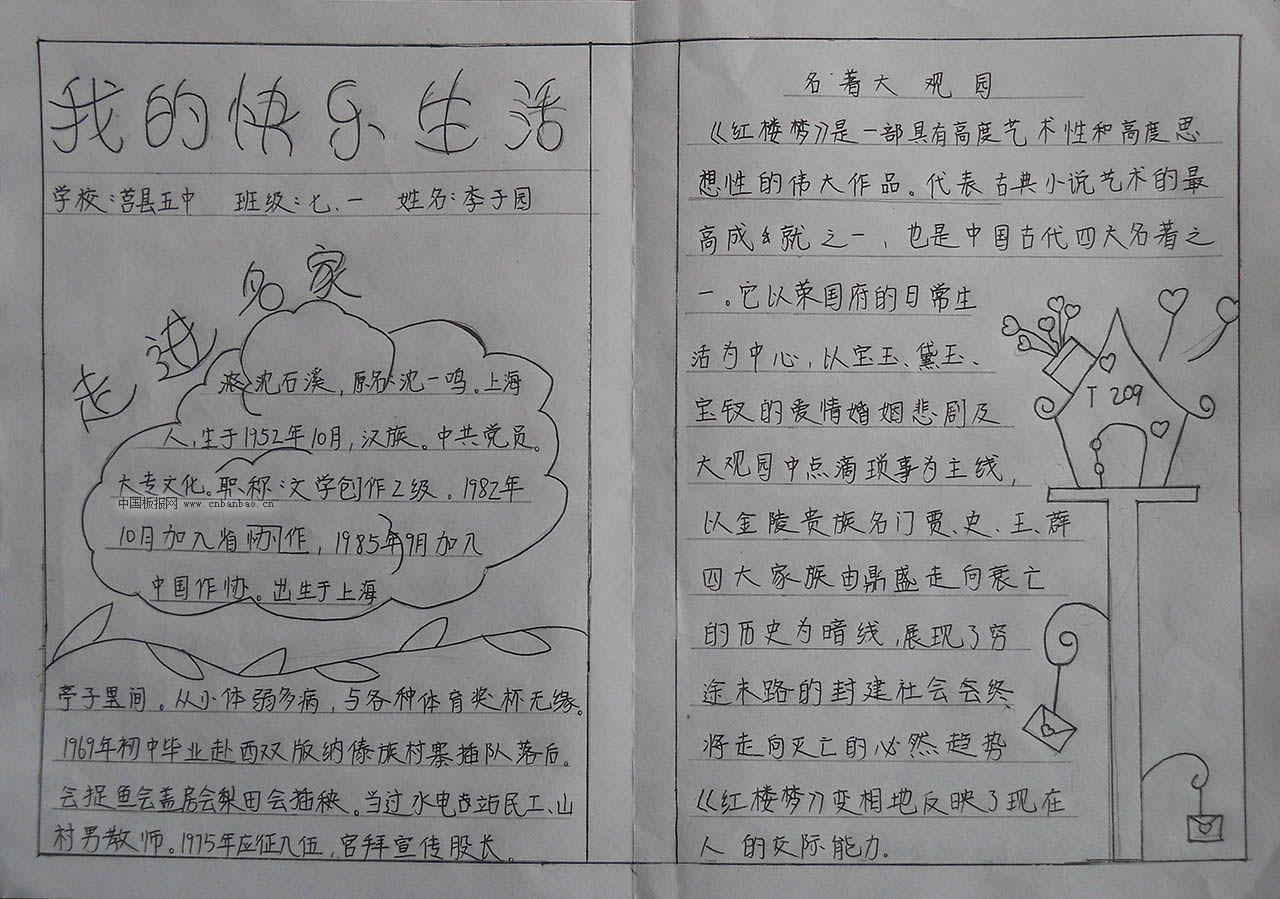 我的快乐生活
学校：莒县五中 班级：七、一 姓名：李子园
走进名家
沈石溪，原名沈一鸣。上海
人，生于1952年10月，汉族。中共党员。
大专文化。职称：文学创作2级。1982年
中国板报网 www.cnbanbao.cn
10月加入省协作，1985年9月加入
中国作协。出生于上海
亭子里间。从小体弱多病，与各种体育奖杯无缘。
1969年初中毕业赴西双版纳傣族村寨插队落后。
会捉鱼会盖房会犁田会插秧。当过水电占站民工、山
村男教师。1975年应征入伍，官拜宣传股长。
名著大观园
《红楼梦》是一部具有高度艺术性和高度思
想性的伟大作品。代表古典小说艺术的最
高成就之一，也是中国古代四大名著之
一。它以荣国府的日常生
活为中心，以宝玉、黛玉、
宝钗的爱情婚姻悲剧及
大观园中点滴琐事为主线，
以金陵贵族名门贾、史、王、薛
四大家族由鼎盛走向衰亡
的历史为暗线，展现了穷
途末路的封建社会会终
将走向灭亡的必然趋势
《红楼梦》变相地反映了现在
人的交际能力.
T 209